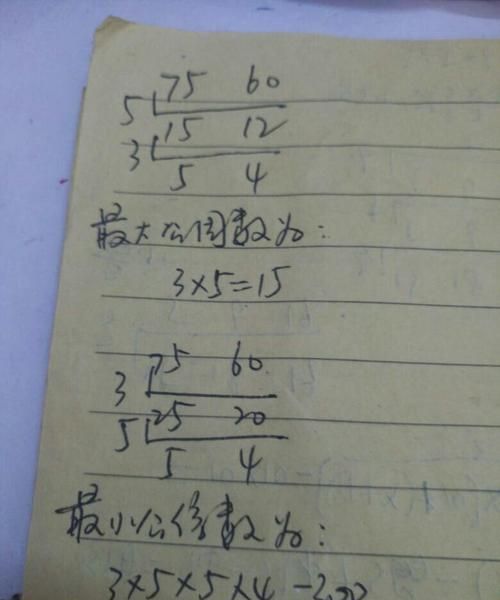 75 60
5 15 12
3 5 4
最大公因数为:
3×5=15
75 60
3 25 20
5 5 4
最小公倍数为:
3×5×5×4=300